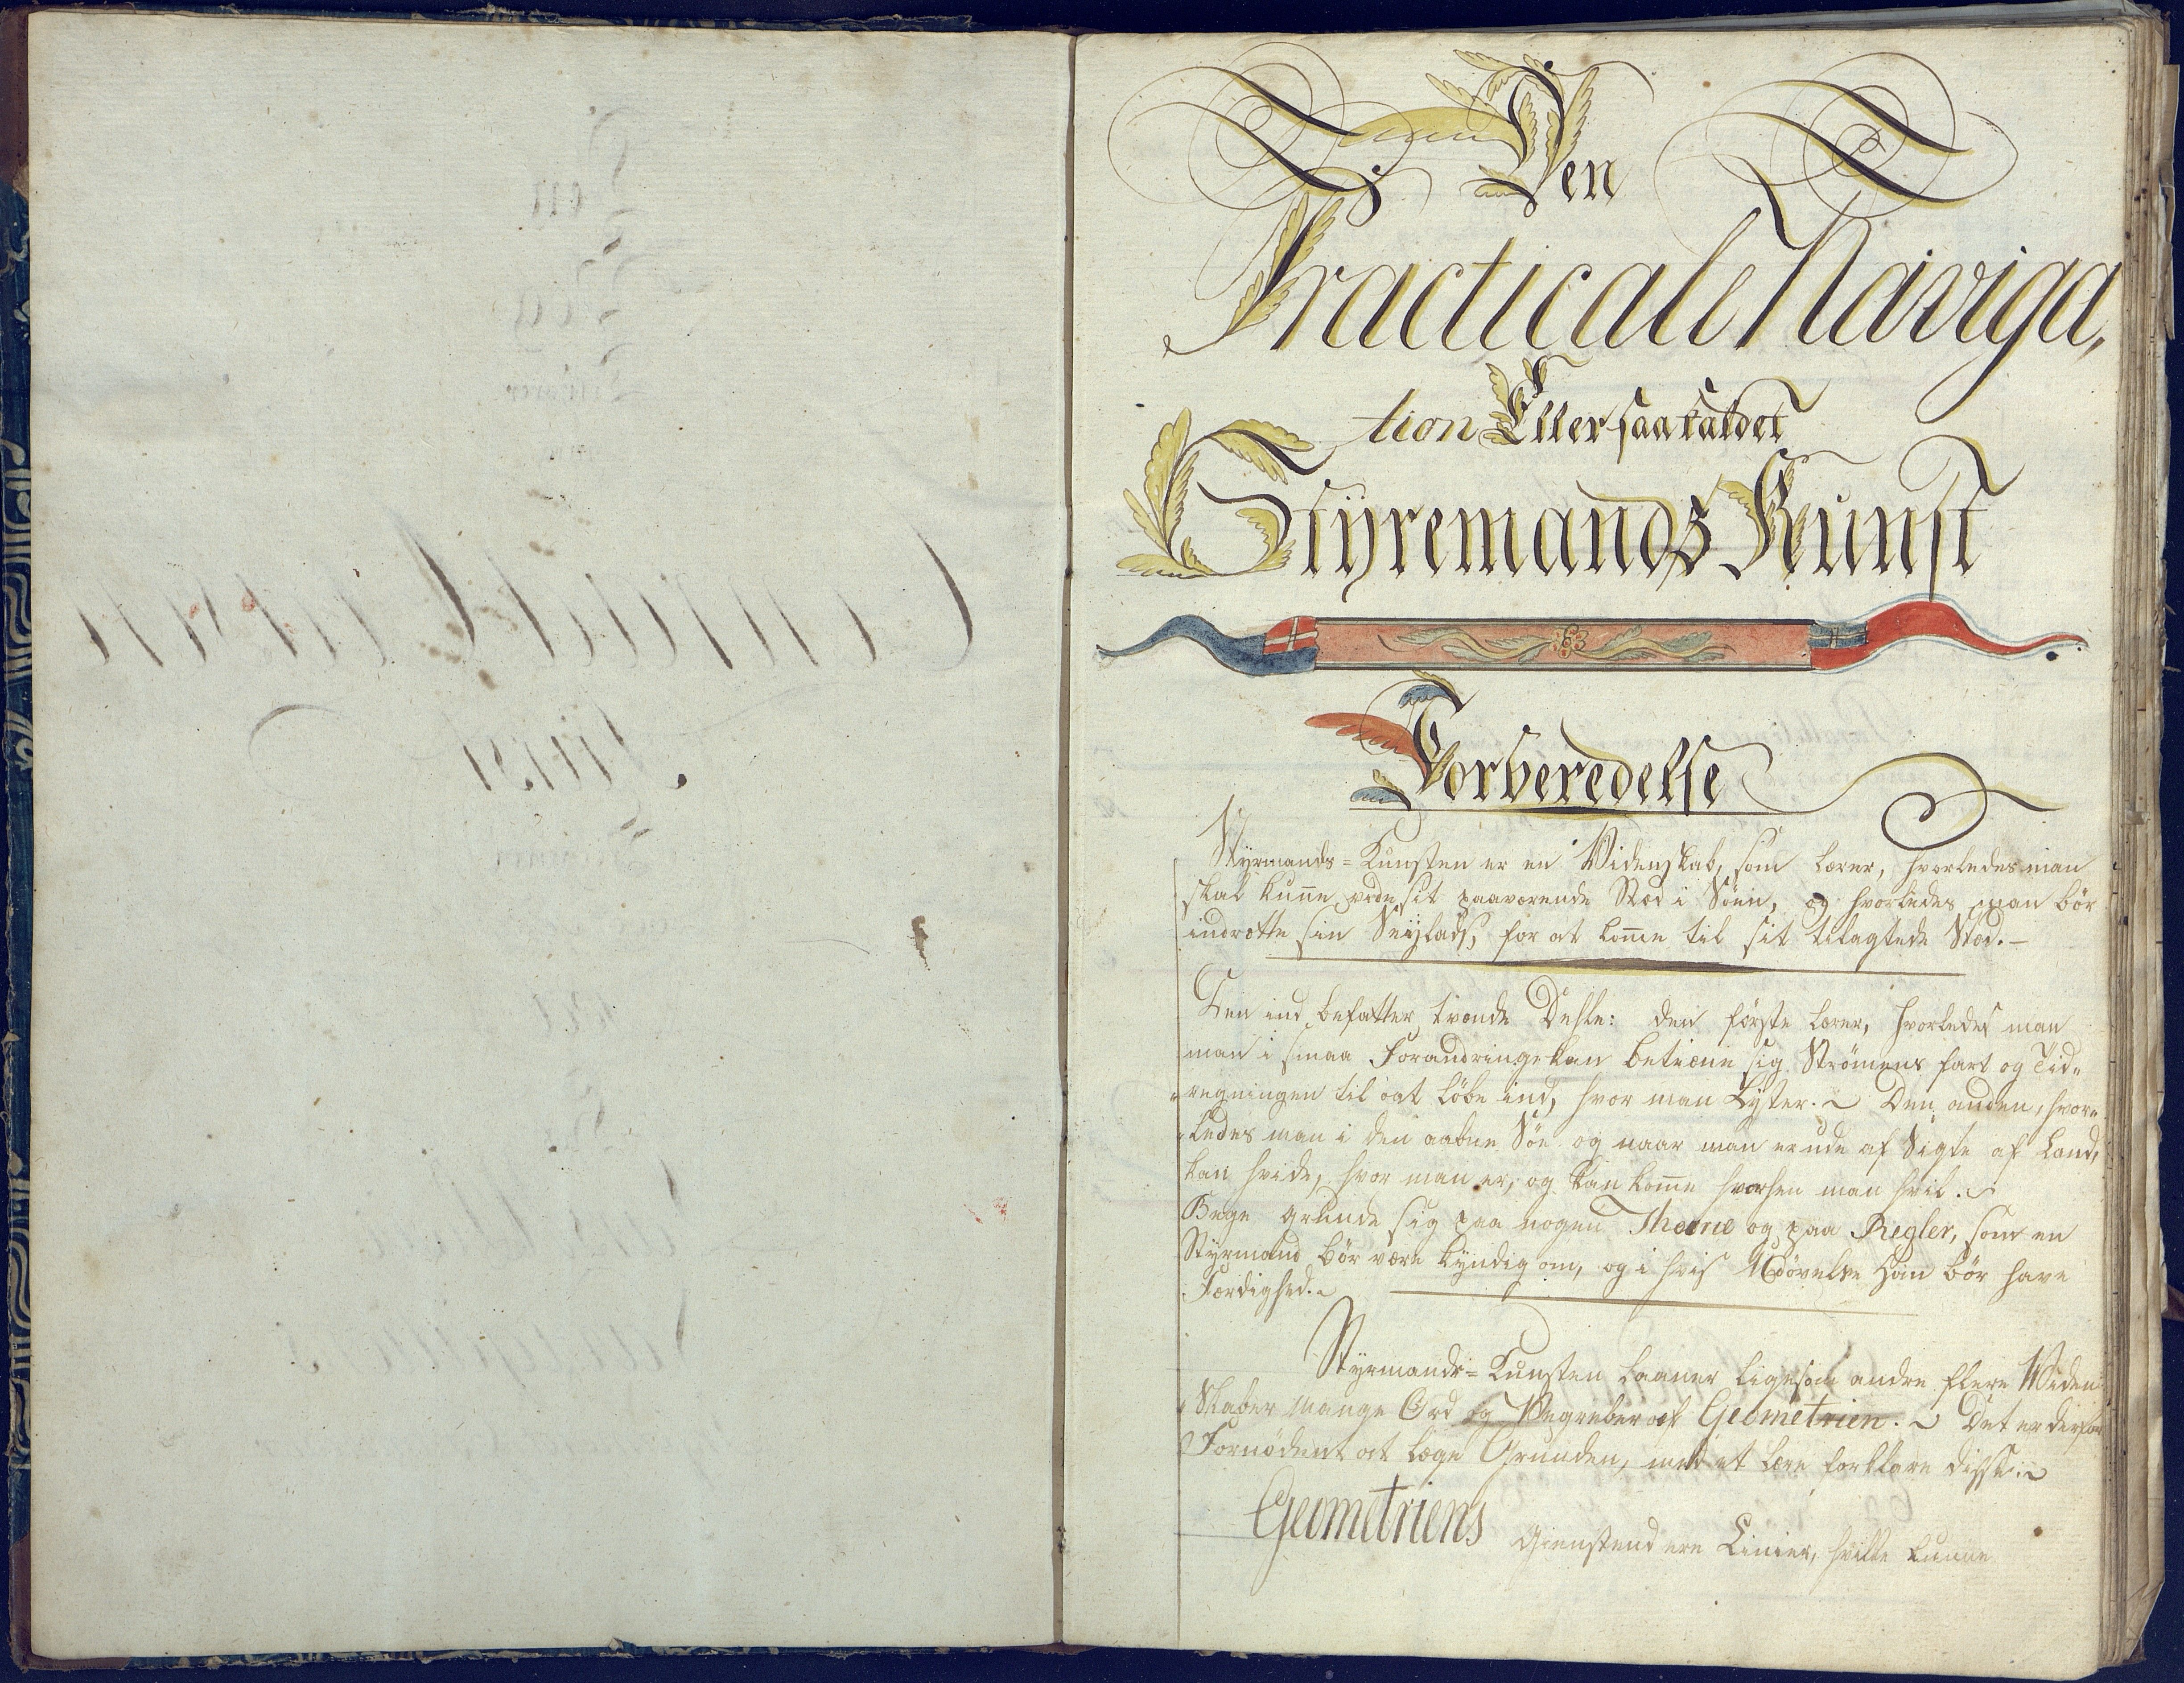 Den
Practicale Naviga,
tion Eller saa kaldet
Styremands Kunst
Forberedelse
Styrmands=Kunsten er en Videnskab, som lærer, hvorledes man
skal kunne vide sit paaværende Stæd i Söen, og hvorledes man bör
indrætte sin Seylads, for at komme til sit tilagtede Stæd.–
Den indbefatter tvende Dehle: den förste lærer, hvorledes man
man i smaa Forandringer kan betiene sig Strömens fart og Tid„
regningen til at löbe ind, hvor man Lyster. ~ Den anden, hvor„
„ledes man i den aabne Söe og naar man er ude af Sigte af Land,
kan hvide, hvor man er, og kan komme hvorhen man hvil. ~
Bege grunde sig paa nogen Theorie og paa Regler, som en
Styrmand bör være kyndig om, og i hvis Udövelse Han bör have
Færdighed. ~
Styrmands=Kunsten laaner ligesom andre flere Widen
„Skaber mange Ord og Begreber af Geometrien. ~ Det er derfor
Fornödent at læge Grunden, med at lære forklare disse. ~
Geometriens Gienstand ere Linier, hvilke kunne